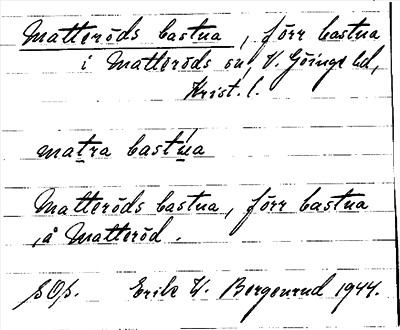 Matteröds bastua, förr bastua
i Matteröds sn V. Göinge hd,
Krist. l.
matra bastua
Matteröds bastua, förr bastua
å Matteröd.
Erik W. Bergenrud 1944.